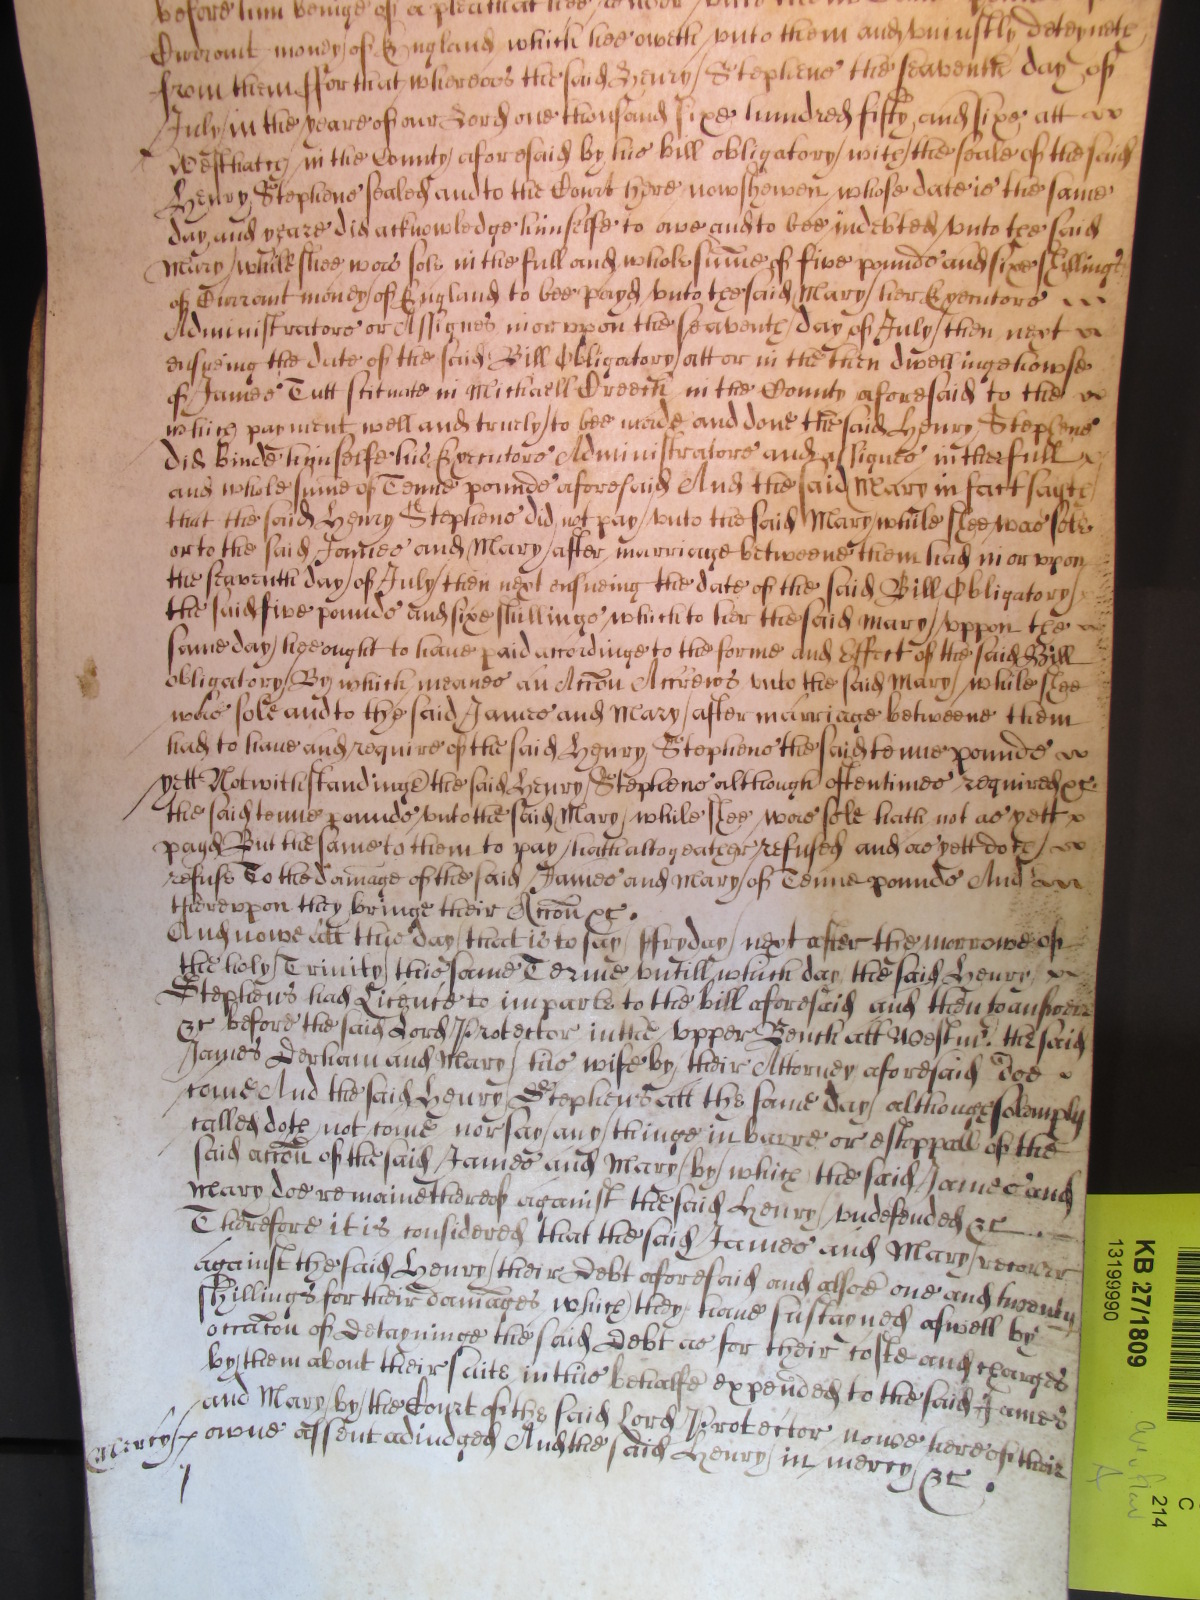 before him beinge of a plea that hee render unto them Tenne pounds of
Currant money of England which hee oweth unto them and uniustly deteyneth
from them ffor that whereas the said Henry Stephens the seaventh day of
July in the yeare of our Lord one thousand sixe hundred fifty and sixe att
Westhatch in the County aforesaid by his bill obligatory with the seale of the said
Henry Stephens sealed and to the Court here now shewen whose date is the same
day and yeare did acknowledge himselfe to owe and to bee indebted unto the said
Mary while shee was sole in the full and whole sume of five pounds and sixe shillings
of Currant money of England to bee payd unto the said Mary her Executors
Administrators or Assignes in or uppon the seaventh day of July then next
ensueing the date of the said Bill Obligatory att or in the then dwellinge howse
of James Tutt scituate in Michaell Creech in the County aforesaid to the
which payment well and truely to bee made and done the said Henry Stephens
did binde himselfe his Executors Administrators and assignes in the full
and whole sume of Tenne pounds aforesaid And the said Mary in fact sayth
that the said Henry Stephens did not pay unto the said Mary while shee was sole
or to the said James and Mary after marriage betweene them had in or uppon
the seaventh day of July then next ensueing the date of the said Bill Obligatory
the said five pounds and sixe shillings which to her the said Mary uppon the
same day hee ought to have paid accordinge to the forme and Effect of the said Bill
obligatory By which meanes an Accon Accrews unto the said Mary while shee
was sole and to the said James and Mary after marriage betweene them
had to have and require of the said Henry Stephens the said tenne pounds
yett Notwithstandinge the said Henry Stephens although oftentimes required &c
the said tenne pounds unto the said Mary while shee was sole hath not as yett
payd But the same to them to pay hath altogeather refused and as yett doth
refuse To the damage of the said James and Mary of Tenne pounds And
thereupon they bringe their Accon &c.
And nowe att this day that is to say ffryday next after the morrowe of
the holy Trinity this same Terme untill which day the said Henry
Stephens had Licence to imparle to the bill aforesaid and then to answer
&c before the said Lord Protector in the upper Bench att Westmr. the said
James Derham and Mary his wife by their Attorney aforesaid Doe
come And the said Henry Stephens att the same day although solemply
called doth not come nor say any thinge in barre or estoppall of the
said accon of the said James and Mary by which the said James and
Mary doe remaine thereof against the said Henry undefended &c
Therefore it is considered that the said James and Mary recover
against the said Henry their Debt aforesaid and alsoe one and twenty
shillings for their damages which they have sustayned aswell by
occacon of Detayninge the said Debt as for their costs and charges
by them about their suite in this behalfe expended to the said James
and Mary by the Court of the said Lord Protector nowe here of their
Mercy owne assent adiudged And the said Henry in mercy &c.
KB 27/1809
13199990
C
214